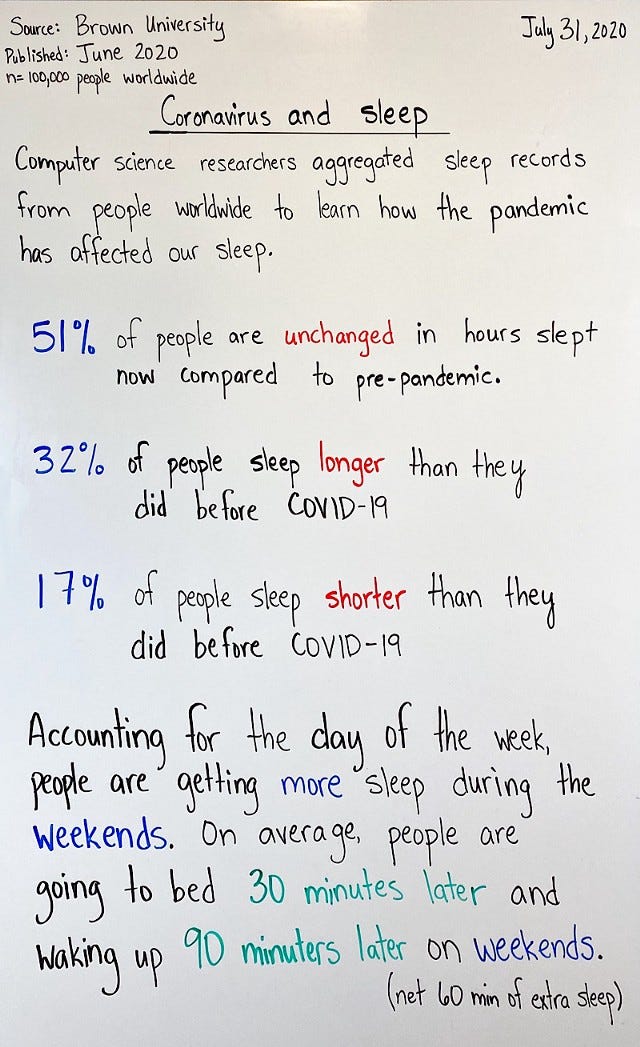 Source: Brown University
July 31, 2020
Published: June 2020
n= 100,000 people worldwide
Coronavirus and sleep
Computer science researchers aggregated sleep records
from people worldwide to learn how the pandemic
has affected our sleep.
51% of people are unchanged in hours slept
now compared to pre-pandemic.
32% of people sleep longer than they
did before COVID-19
17% of people sleep shorter than they
did before COVID-19
Accounting for the day of the week,
people are getting more sleep during the
weekends. On average, people are
going to bed 30 minutes later and
waking up 90 minuters later on weekends.
(net 60 min of extra sleep)